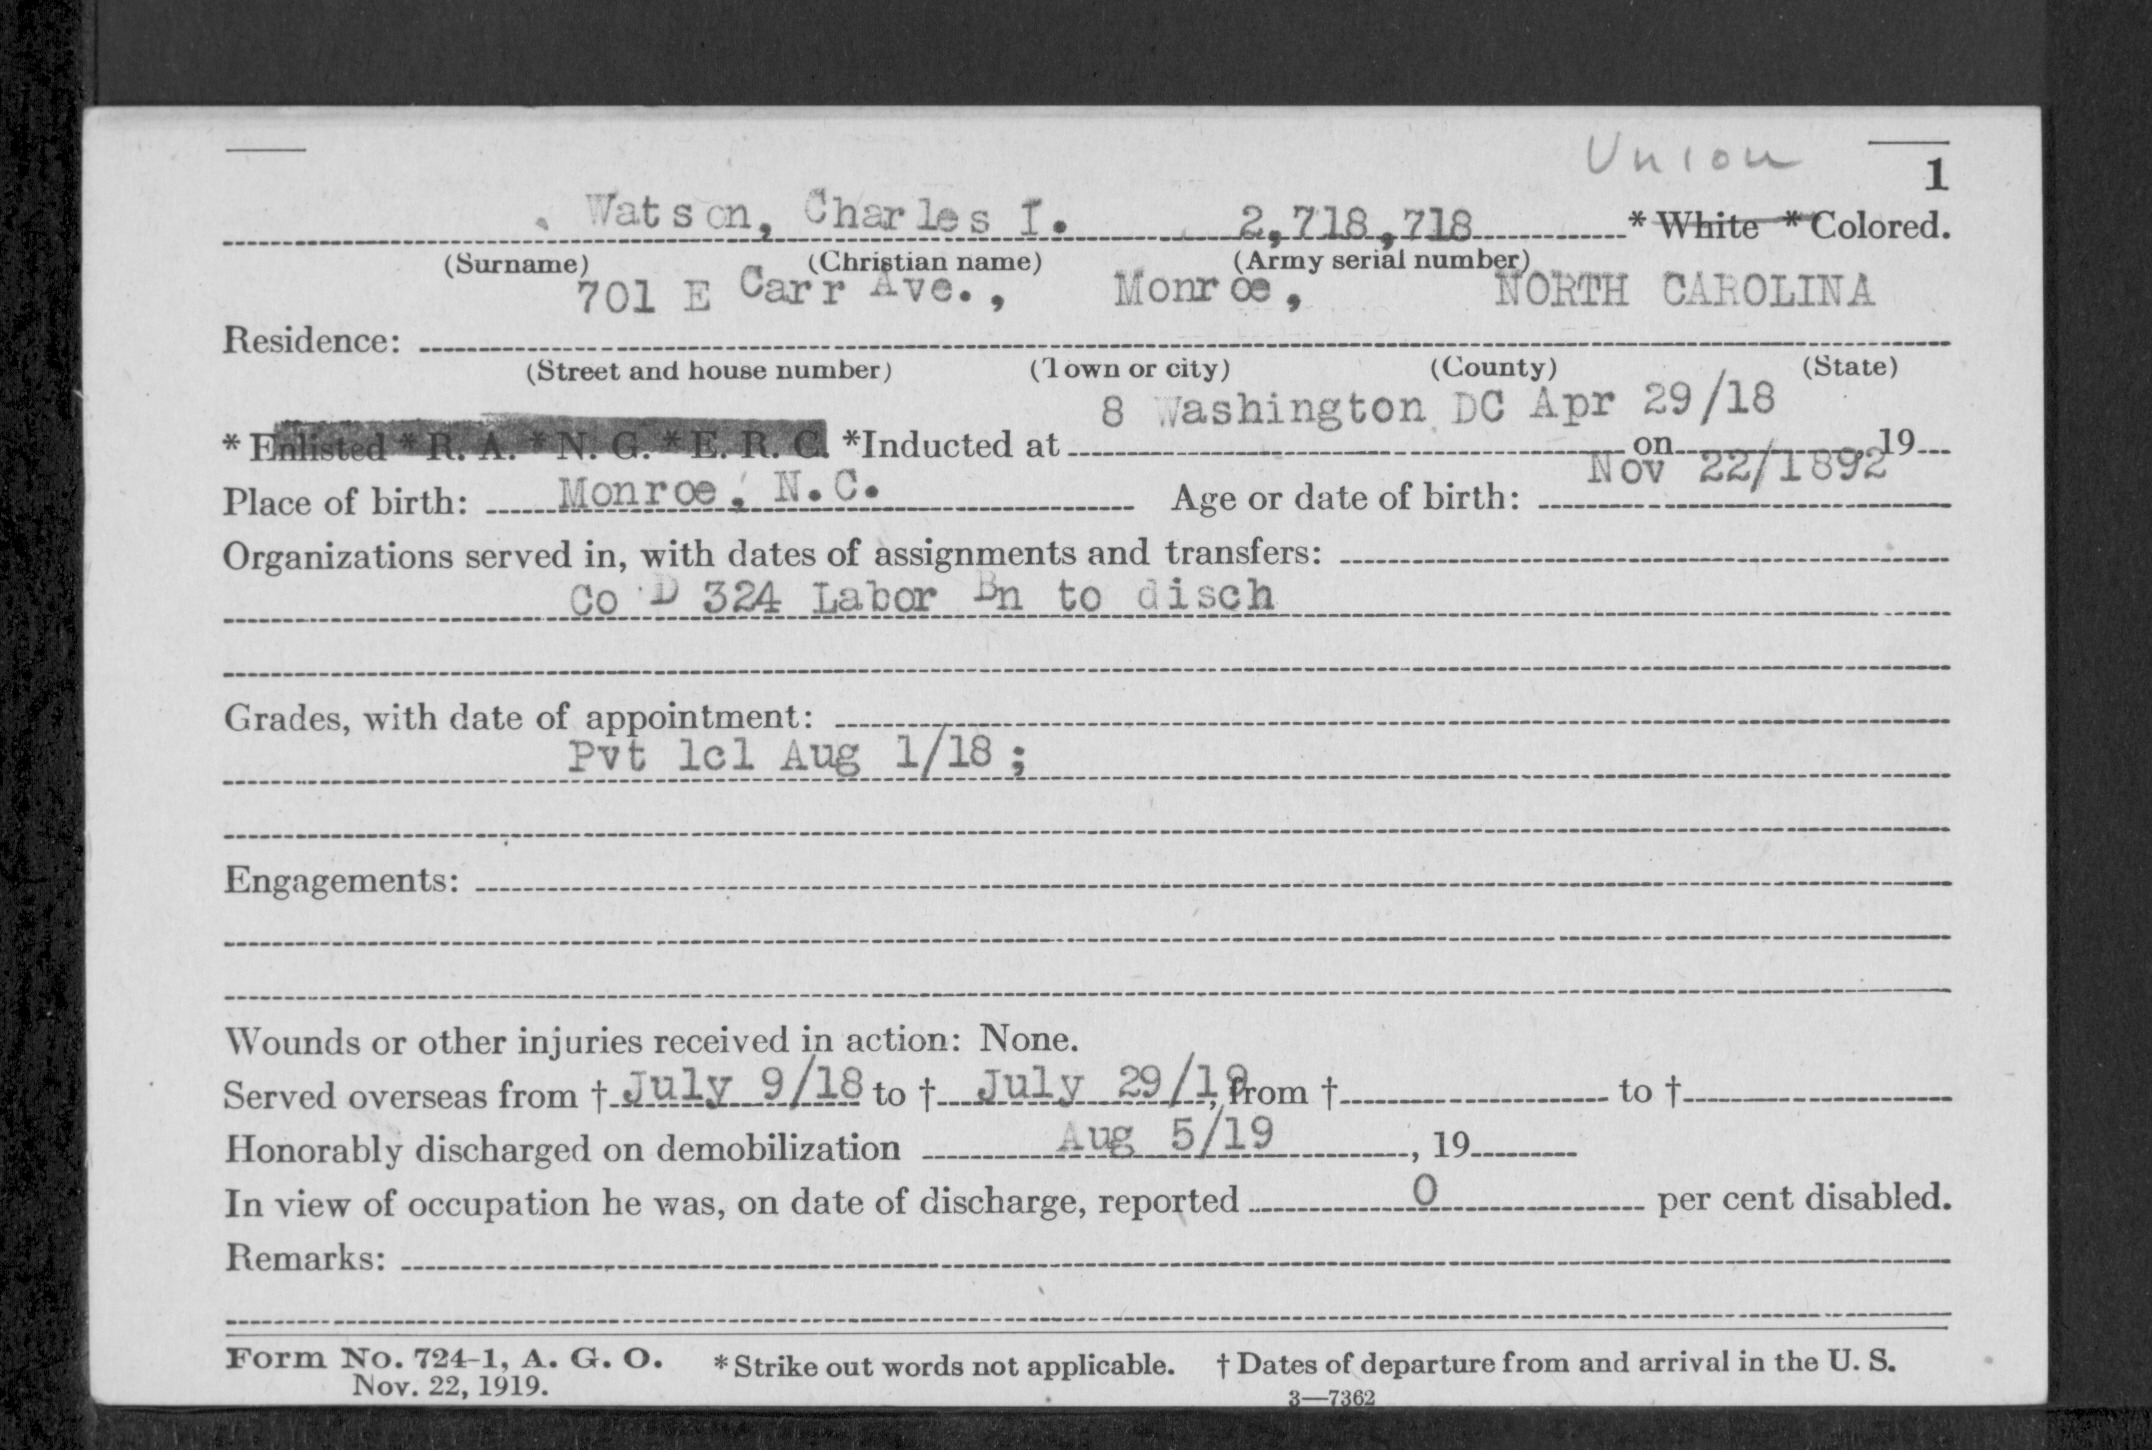 Union
1
Watson, Charles I. 2,718,718 * White * Colored.
(Surname) (Christian name) (Army serial number)
701 E Carr Ave., Monroe, NORTH CAROLINA
Residence:
(Street and house number) (Town or city) (County) (State)
8 Washington DC Apr 29/18
* Enlisted * R. A. * N. G. * E. R. C. *Inducted at on 19
Place of birth: Monroe, N.C. Age or date of birth: Nov 22/1892
Organizations served in, with dates of assignments and transfers:
Co D 324 Labor Bn to disch
Grades, with date of appointment:
Pvt 1cl Aug 1/18;
Engagements:
Wounds or other injuries received in action: None.
Served overseas from † July 9/18 to † July 29/19, from † to †
Honorably discharged on demobilization Aug 5/19, 19
In view of occupation he was, on date of discharge, reported 0 per cent disabled.
Remarks:
Form No. 724-1, A. G. O. * Strike out words not applicable. † Dates of departure from and arrival in the U. S.
Nov. 22, 1919. 3—7362